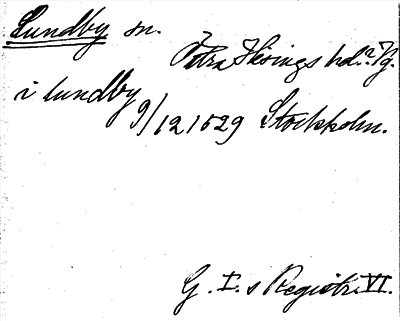 Lundby sn.
Östra Hisings hd. Vg.
i lundby
9/12 1529 Stockholm.
G. I.s Registr. VI.